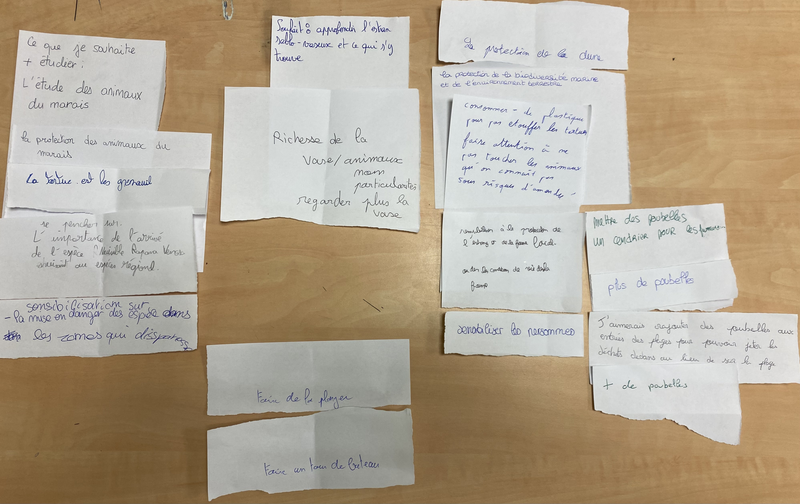 Ce que je souhaite
+ étudier :
L'étude des animaux
du marais
la protection des animaux du
marais
La tortue et les grenouil
se pencher sur
L'importance de l'arrivé
de l'espèce
sensibilisation sur
- la mise en danger des espèce dans
les zones qui disparaisse
Souhait : approfondir l'estran
sablo-vaseux et ce qui s'y
trouve
Richesse de la
vase/animaux
nom
particularités
regarder plus la
vase
Faire de la plonger
Faire un tour de bateau
La protection de la dune
la protection de la biodiversité marine
et de l'environnement terrestre
consommer - de plastique
pour pas étouffer les tortues
faire attention à ne
pas toucher les animaux
qu'on connait pas
sous risques d'amendes
sensibilisation à la protection de
l'estran et sa faune locale
faune
sensibiliser les personnes
mettre des poubelles
un cendrier pour les fumeurs
plus de poubelles
J'aimerais rajouter des poubelles aux
entrées des plages pour pouvoir jeter les
déchets dedans au lieu de sur la plage
+ de poubelles